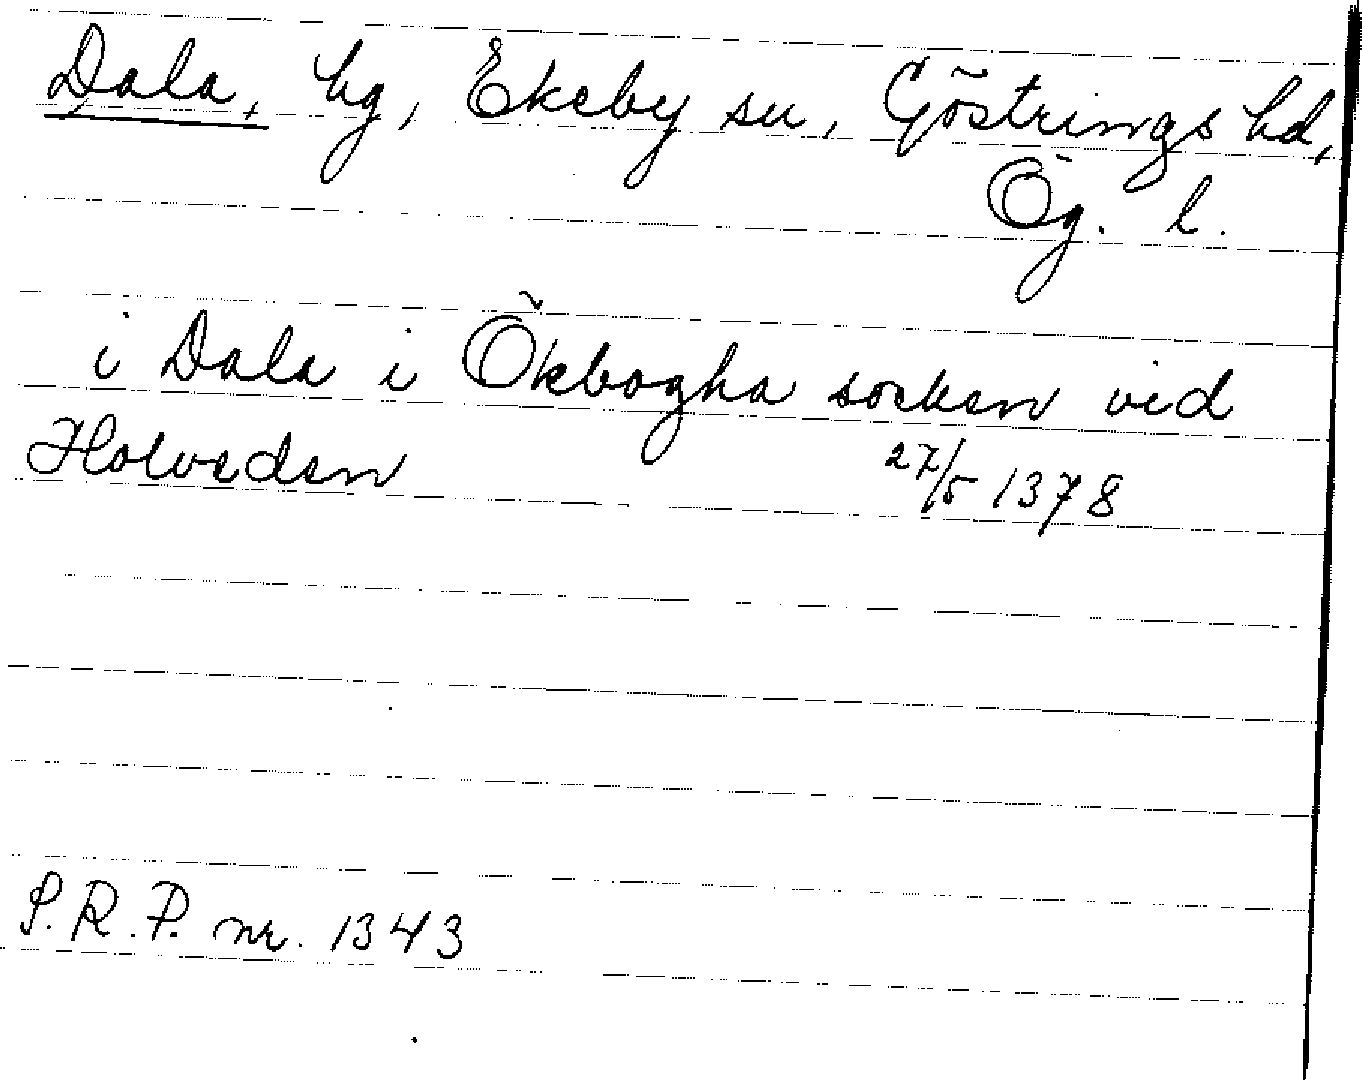 Dala, hg, Ekeby sn, Göstrings hd,
Ög. l.
i Dala i Ökbogha socken vid
Holveden 27/5 1378
S.R.P. nr. 1343